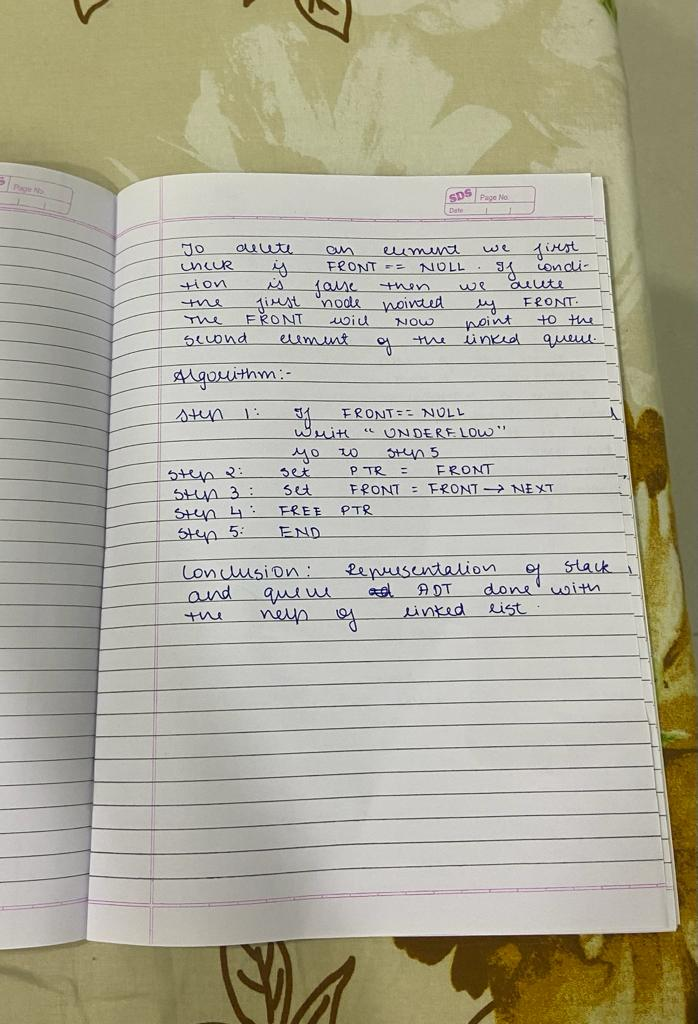 S Page No.
SDS Page No.
Date
To delete an element we first
check if FRONT == NULL. If condi-
tion is false then we delete
the first node pointed by FRONT.
The FRONT will NOW point to the
second element of the linked queue.
Algorithm:-
Step 1: If FRONT == NULL
write "UNDERFLOW"
go to step 5
Step 2: Set PTR = FRONT
Step 3: Set FRONT = FRONT → NEXT
Step 4: FREE PTR
Step 5: END
Conclusion: Representation of stack
and queue ADT done with
the help of linked list.